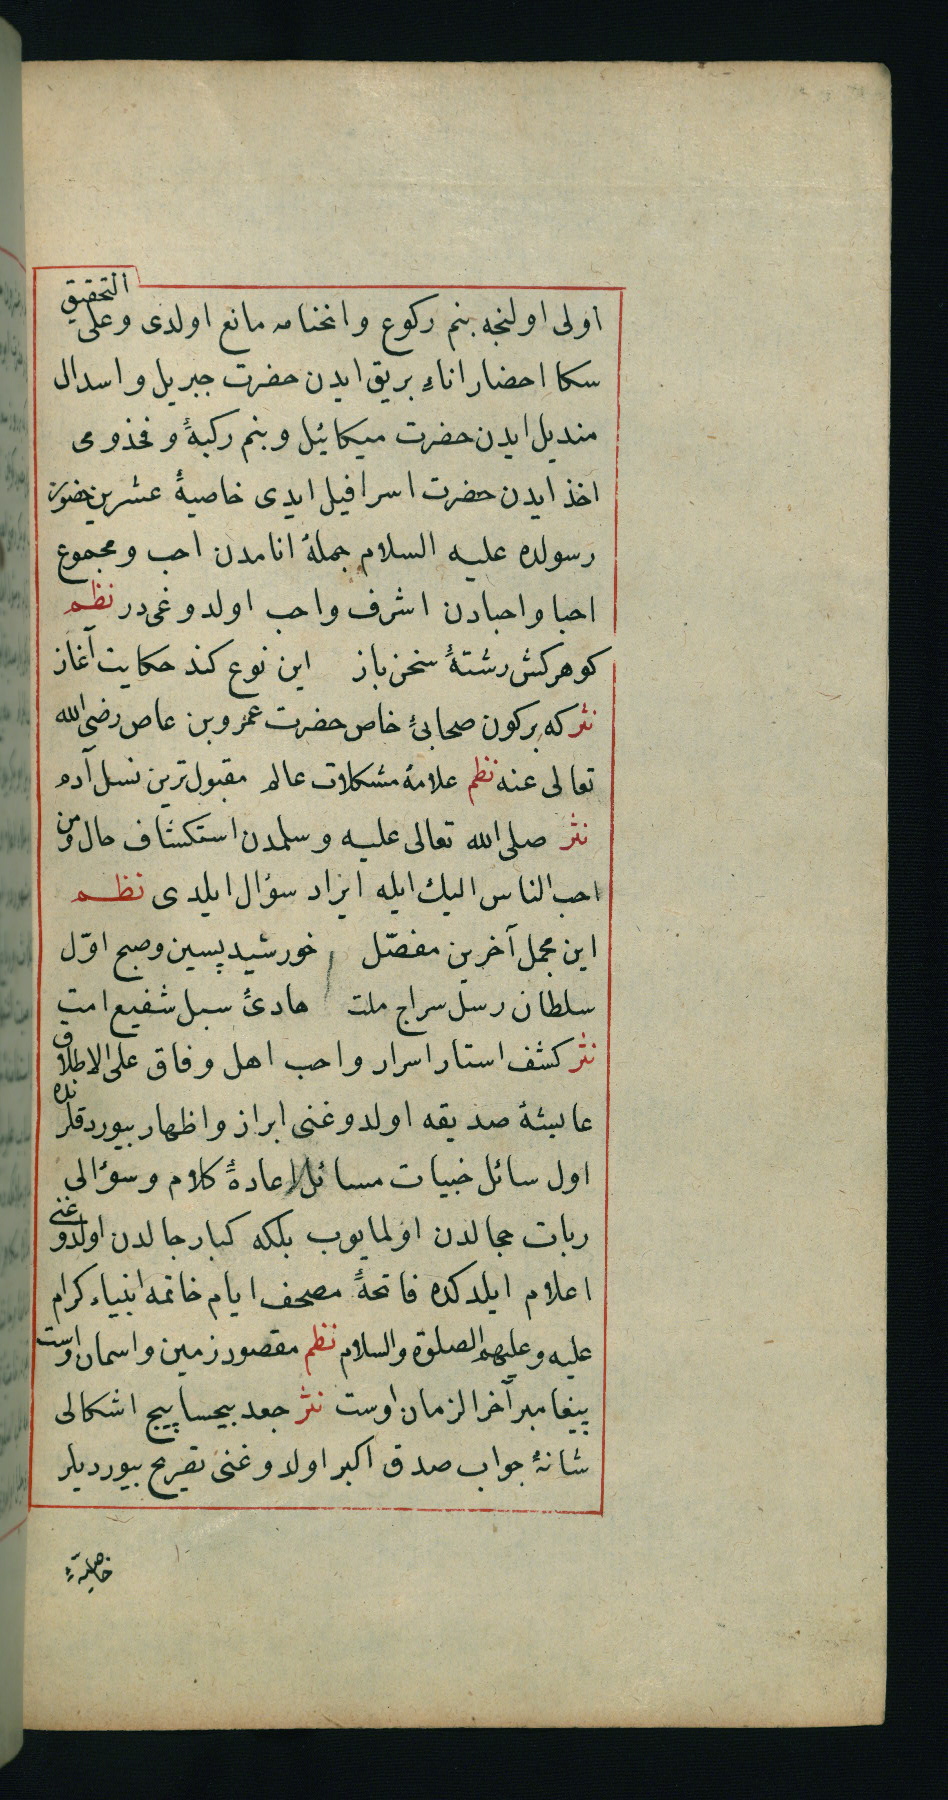 اولی اولنجه بنم ركوع وانحنامه مانع اولدی وعلی التحقیق
سكا احضار اناء بریق ایدن حضرت جبریل واسدال
مندیل ایدن حضرت میكائیل وبنم ركبهٔ وفخذومی
اخذ ایدن حضرت اسرافیل ایدی خاصیهٔ عشرین حضور
رسولده علیه السلام جملهٔ انامدن احب ومجموع
احبا واحبادن اشرف واحب اولدوغی در نظم
كوهركش رشتهٔ سخن باز این نوع كند حكایت آغاز
نثر كه بركون صحابیٔ خاص حضرت عمرو بن عاص رضی الله
تعالی عنه نظم علامهٔ مشكلات عالم مقبول ترین نسل آدم
نثر صلی الله تعالی علیه وسلمدن استكشاف حال ومن
احب الناس الیك ایله ایراد سؤال ایلدی نظم
این مجمل آخرین مفصّل خورشید پسین وصبح اوّل
سلطان رسل سراج ملت هادیٔ سبل شفیع امت
نثر كشف استار اسرار واحب اهل وفاق علی الاطلاق
عایشهٔ صدیقه اولدوغنی ابراز واظهار بیوردقلرنده
اول سائل خبیات مسائل اعادهٔ كلام وسؤالی
ربات حجالدن اولمایوب بلكه كبار رجالدن اولدوغنی
اعلام ایلدكده فاتحهٔ مصحف ایام خاتمه انبیاء كرام
علیه وعلیهم الصلوة والسلام نظم مقصود زمین واسمان اوست
پیغامبر آخر الزمان اوست نثر جعد پیچاپیچ اشكالی
شانهٔ جواب صدق اكبر اولدوغنی تفریح بیوردیلر
خاصیهٔ